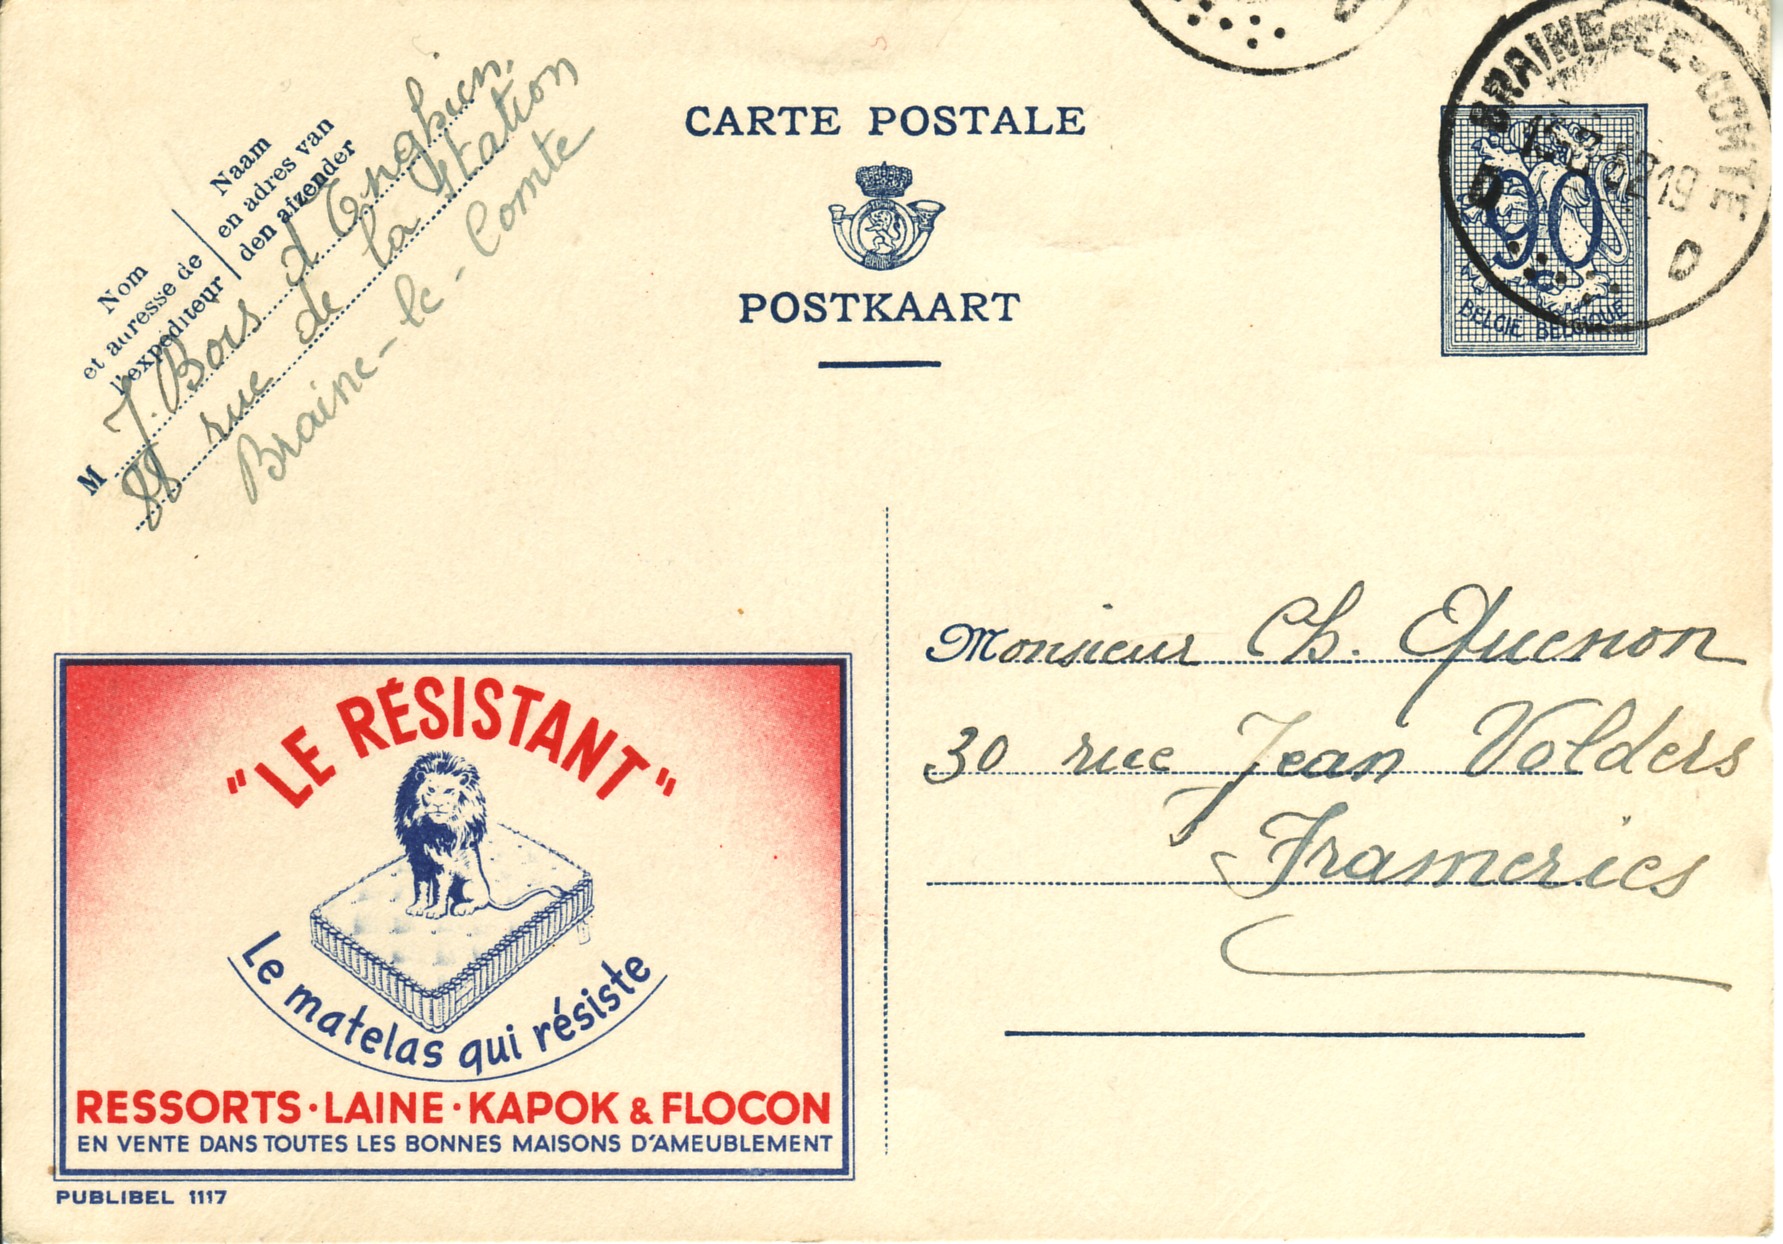 CARTE POSTALE
POSTKAART
Nom
et adresse de
l'expéditeur
Naam
en adres van
den afzender
M J. Bois d'Enghien,
88 rue de la Station
Braine-le-Comte
BRAINE-LE-COMTE
19
D D
D
90
BELGIE BELGIQUE
Monsieur Ch. Quenon
30 rue Jean Volders
Frameries
"LE RÉSISTANT"
Le matelas qui résiste
RESSORTS · LAINE · KAPOK & FLOCON
EN VENTE DANS TOUTES LES BONNES MAISONS D'AMEUBLEMENT
PUBLIBEL 1117